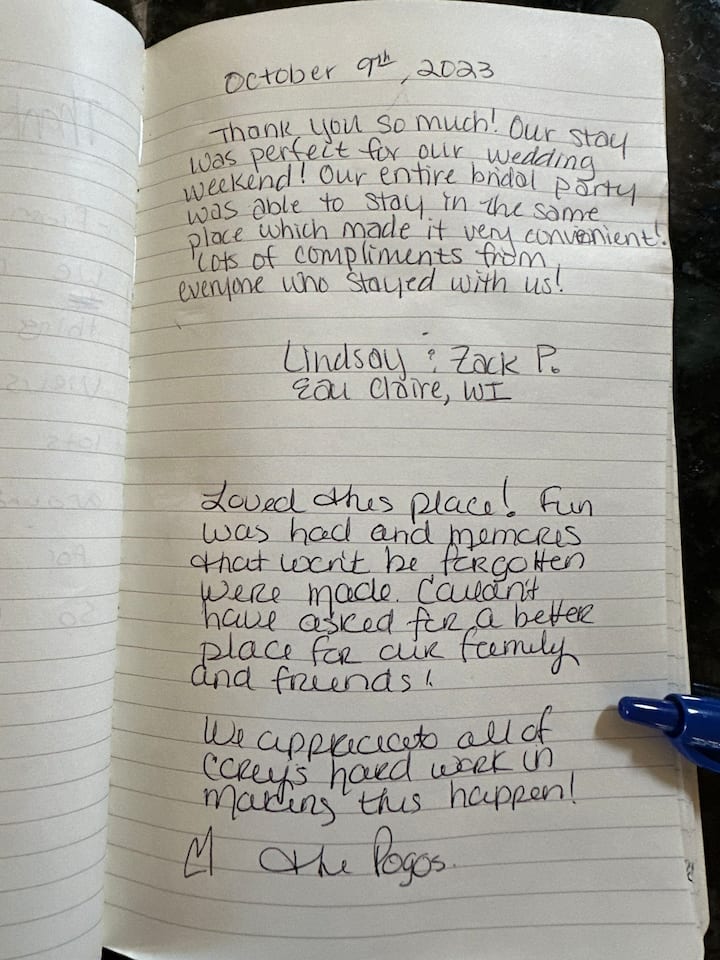 October 9th, 2023
Thank you so much! Our stay
was perfect for our wedding
weekend! Our entire bridal party
was able to stay in the same
place which made it very convenient!
Lots of compliments from
everyone who stayed with us!
Lindsay & Zack P.
Eau Claire, WI
Loved this place! Fun
was had and memories
that won't be forgotten
were made. Couldn't
have asked for a better
place for our family
and friends!
We appreciate all of
Corey's hard work in
making this happen!
The Pogos.